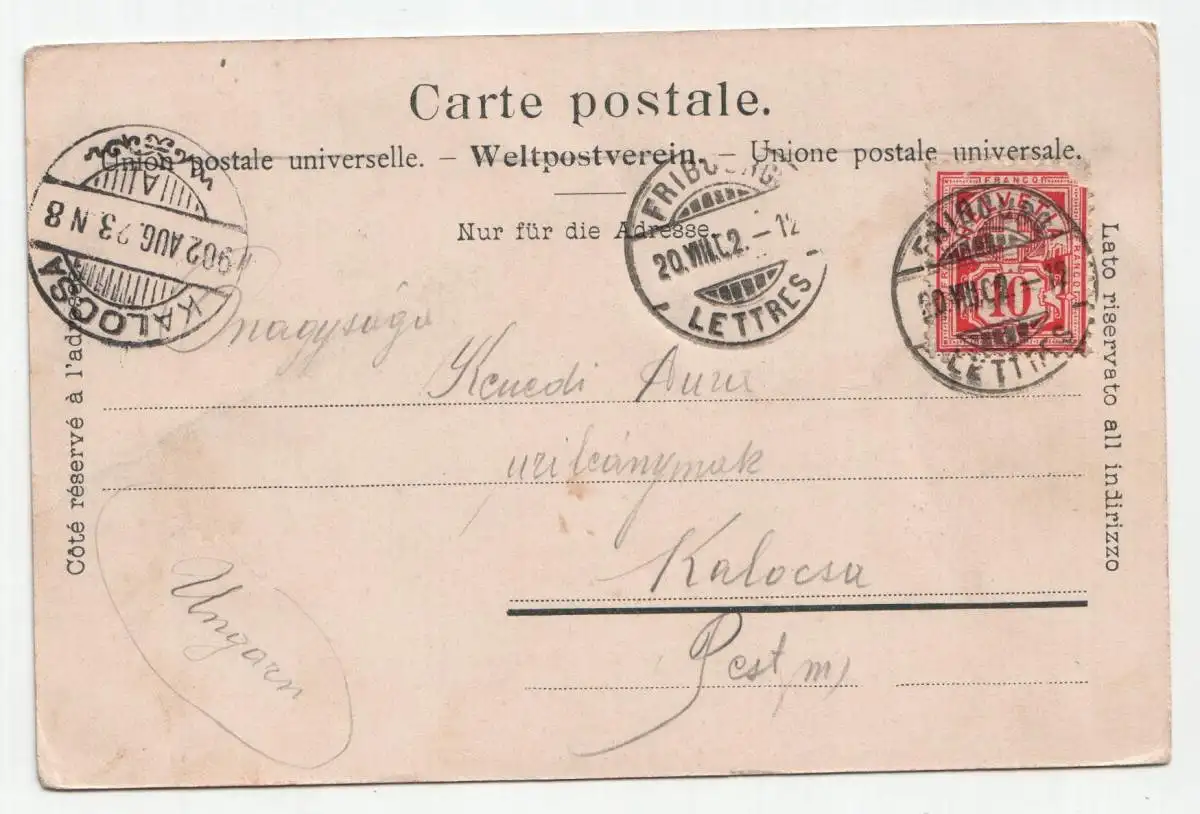 Carte postale.
Union postale universelle. – Weltpostverein. – Unione postale universale.
Nur für die Adresse.
Côté réservé à l'adresse
Lato riservato all indirizzo
KALOCSA
A
902 AUG. 23 N 8
FRIBOURG
20.VIII.02. – 12
LETTRES
FRANCO
10
FRIBOURG
20.VIII.02. – 12
LETTRES
Önagysága
Kenedi
urileánynak
Kalocsa
Pest m)
Ungarn